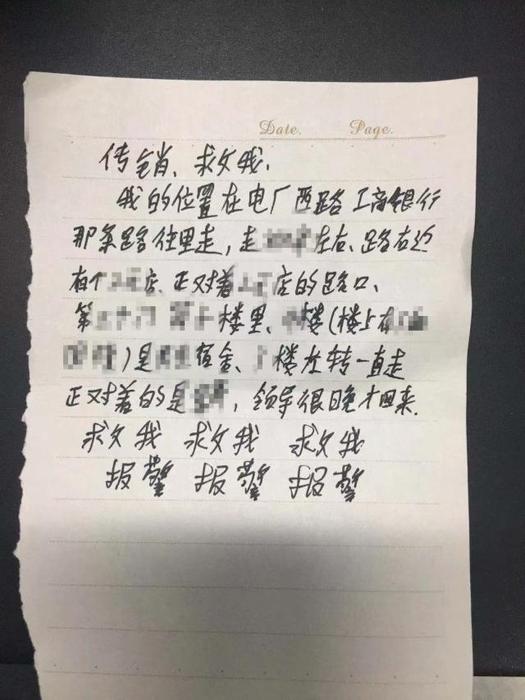 Date. Page.
传销、求救我、
我的位置在电厂西路工商银行
那条路往里走,走左右、路右边
有个店、正对着店的路口、
第楼里、楼(楼上有
)是宿舍、楼左转一直走
正对着的是,领导很晚才回来.
求救我 求救我 求救我
报警 报警 报警